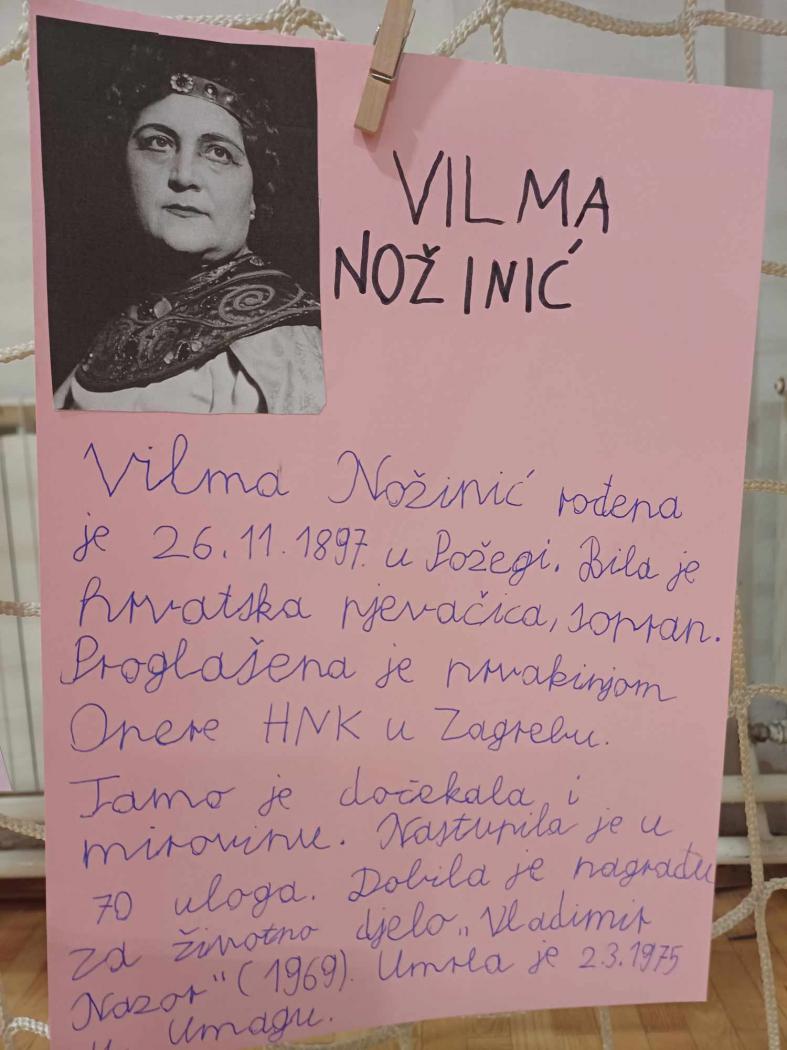 VILMA
NOŽINIĆ
Vilma Nožinić rođena
je 26.11.1897. u Požegi. Bila je
hrvatska pjevačica, sopran.
Proglašena je prvakinjom
Opere HNK u Zagrebu.
Tamo je dočekala i
mirovinu. Nastupila je u
70 uloga. Dobila je nagradu
za životno djelo „Vladimir
Nazor" (1969). Umrla je 2.3.1975
u Umagu.